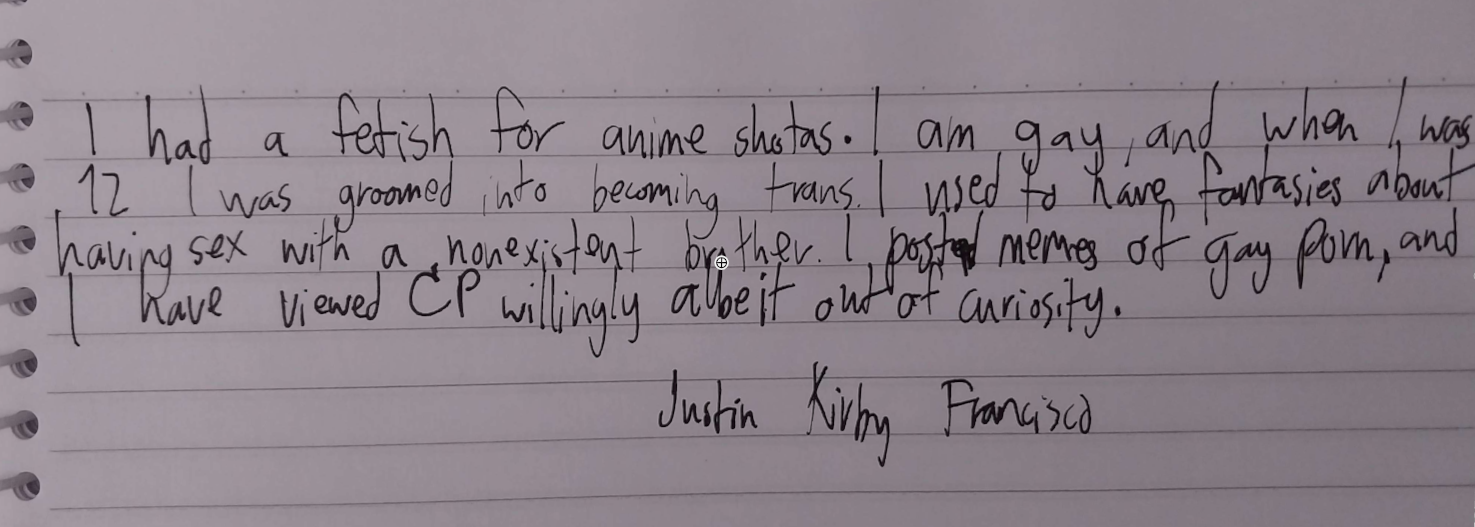 I had a fetish for anime shotas. I am gay, and when I was
12 I was groomed into becoming trans. I used to have fantasies about
having sex with a nonexistent brother. I posted memes of gay porn, and
I have viewed CP willingly albeit out of curiosity.
Justin Kirby Francisco